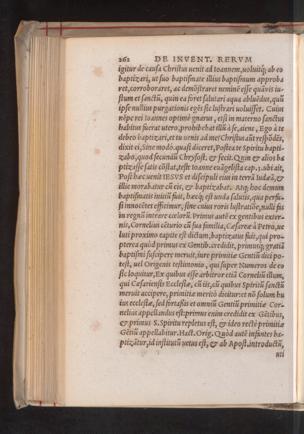 262 DE INVENT. RERVM
igitur de causa Christus uenit ad Ioannem, uoluitq́; ab eo
baptizari, ut suo baptismate illius baptismum approba
ret, corroboraret, ac demõstraret neminẽ esse quãuis iu-
stum et sanctũ, quin ea foret salutari aqua abluẽdus, quũ
ipse nullius purgationis egẽs sic lustrari uoluisset. Cuius
rei Ioannes optimè gnarus, etsi in materno sanctus
habitus fuerat utero, prohibebat illũ à se, aient, Ego à te
debeo baptizari, et tu uenis ad me? Christus aũt respõdẽs,
dixit ei, Sine modo. quasi diceret, Postea te Spiritu bapti-
zabo, quod secundũ Chrysost. & fecit. Quin & alios ba
ptizasse satis cõstat, teste Ioanne euãgelista cap. 3. ubi ait,
Post hæc uenit IESVS et discipuli eius in terrã Iudæã, &
illic morabatur cũ eis, & baptizabat. Atq; hoc demum
baptismatis initiũ fuit, hæcq́; est unda salutis, qua perfu-
si innocẽtes efficimur, sine cuius roris lustratiõe, nulli fas
in regnũ intrare cœlorũ. Primus autẽ ex gentibus exter-
nis, Cornelius cẽturio cũ sua familia, Cæsareæ à Petro, ue
luti proximo capite est dictum, baptizatus fuit, qui pro-
pterea quòd primus ex Gentib. credidit, primusq́; gratiã
baptismi suscipere meruit, iure primitiæ Gentiũ dici po-
test, uel Origenis testimonio, qui super Numeros de eo
sic loquitur, Ex quibus esse arbitror etiã Cornelium illum,
qui Cæsariensis Ecclesiæ, cũ iis, cũ quibus Spiritũ sanctũ
meruit accipere, primitiæ meritò dicitur: et nõ solum hu
ius ecclesiæ, sed fortassis et omniũ Gentiũ primitiæ Cor-
nelius appellandus est: primus enim credidit ex Gẽtibus,
& primus S. Spiritu repletus est, & ideo rectè primitiæ
Gẽtiũ appellabitur. Hact. Orig. Quòd autẽ infantes ba-
ptizãtur, id institutũ uetus est, & ab Apost. introductũ,
uti